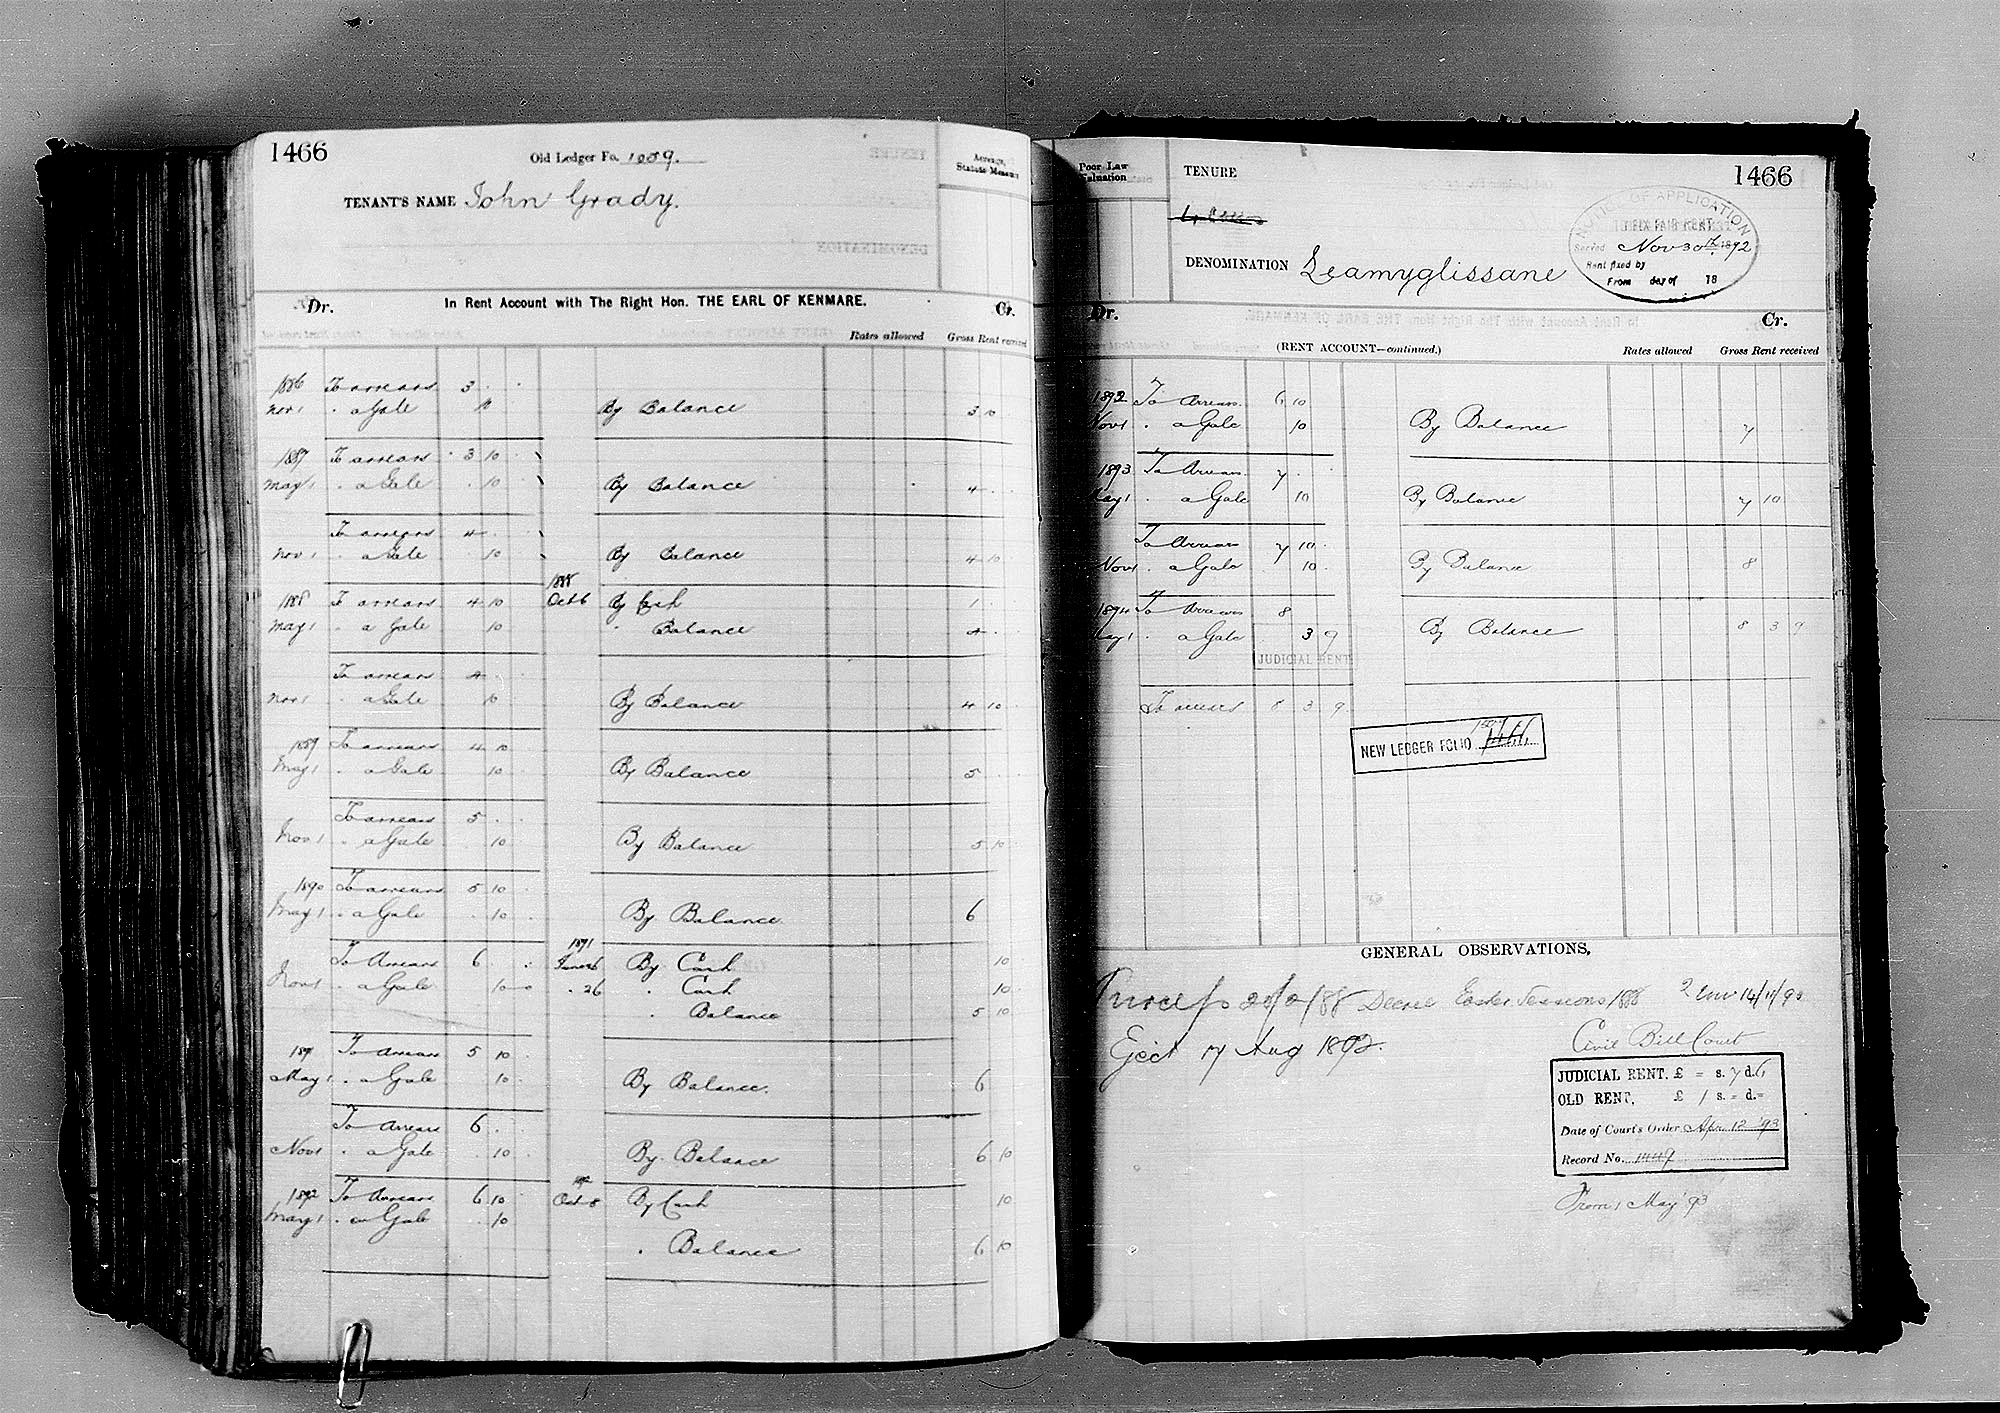 1466
Old Ledger Fo. 1059.
TENANT'S NAME John Grady.
Acreage, Statute Measure
Dr. In Rent Account with The Right Hon. THE EARL OF KENMARE. Cr.
Rates allowed Gross Rent received
1886 To arrears 3 . .
Nov 1 . a Gale 10 By Balance 3 10
1887 To arrears 3 10 .
May 1 . a Gale . 10 . By Balance 4 . .
To arrears 4 . .
Nov 1 . a Gale 10 By Balance 4 10
1888
1888 To arrears 4 10 Oct 6 By Cash 1 .
May 1 . a Gale 10 " Balance 4 .
To arrears 4 .
Nov 1 . a Gale 10 By Balance 4 10
1889 To arrears 4 10
May 1 . a Gale 10 By Balance 5 . .
To arrears 5 . .
Nov 1 . a Gale . 10 By Balance 5 10
1890 To arrears 5 10 .
May 1 . a Gale . 10 . By Balance 6
1891
To Arrears 6 . June 6 By Cash 10
Nov 1 . a Gale 10 . 26 . Cash 10
. Balance 5 10
1891 To Arrears 5 10
May 1 . a Gale 10 By Balance. 6
To Arrears 6 .
Nov 1 . a Gale . 10 By Balance 6 10
1892 To Arrears 6 10 Oct 8 By Cash 10
May 1 . a Gale . 10
. Balance 6 10
Poor Law Valuation
TENURE
1466
NOTICE OF APPLICATION
TO FIX FAIR RENT
Served Nov 30th 1892
Rent fixed by
From day of 18
DENOMINATION Leamyglissane
Dr. Cr.
(RENT ACCOUNT—continued.)
Rates allowed Gross Rent received
1892 To Arrears. 6 10
Nov 1 . a Gale 10 By Balance 7
1893 To Arrears 7 .
May 1 . a Gale 10 By Balance 7 10
To Arrears 7 10
Nov 1 . a Gale 10 By Balance 8
1894 To Arrears 8
May 1 . a Gale . 3 9 By Balance 8 3 9
JUDICIAL RENT.
To arrears 8 3 9
NEW LEDGER FOLIO 1466
GENERAL OBSERVATIONS.
20/2/88 Decree Easter Sessions 1888
Eject 17 Aug 1892.
Civil Bill Court
JUDICIAL RENT. £ = s. 7 d. 6
OLD RENT, £ 1 s. - d. -
Date of Court's Order Apr 12 '93
Record No. 1449
From 1 May '93